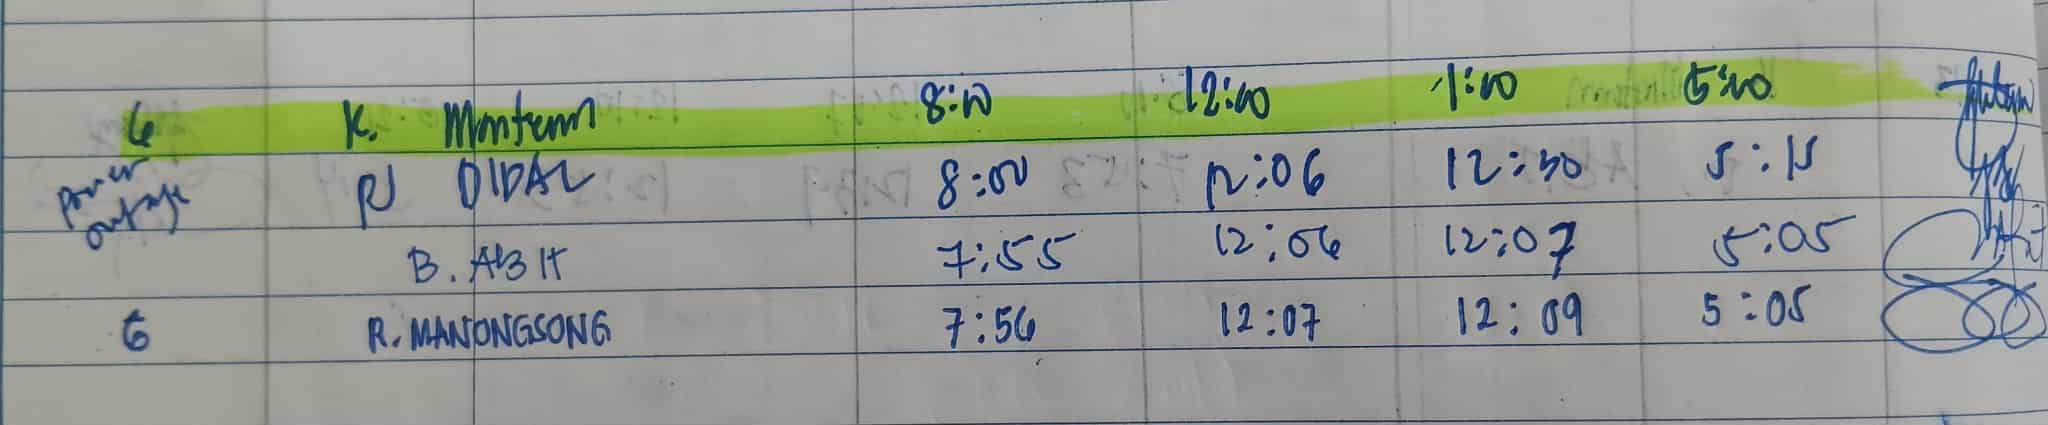 6 K. 8:00 12:00 1:00 5:00
power RJ DIDAL 8:00 12:06 12:30 5:15
outage
B. ABIT 7:55 12:06 12:07 5:05
6 R. MANONGSONG 7:56 12:07 12:09 5:05